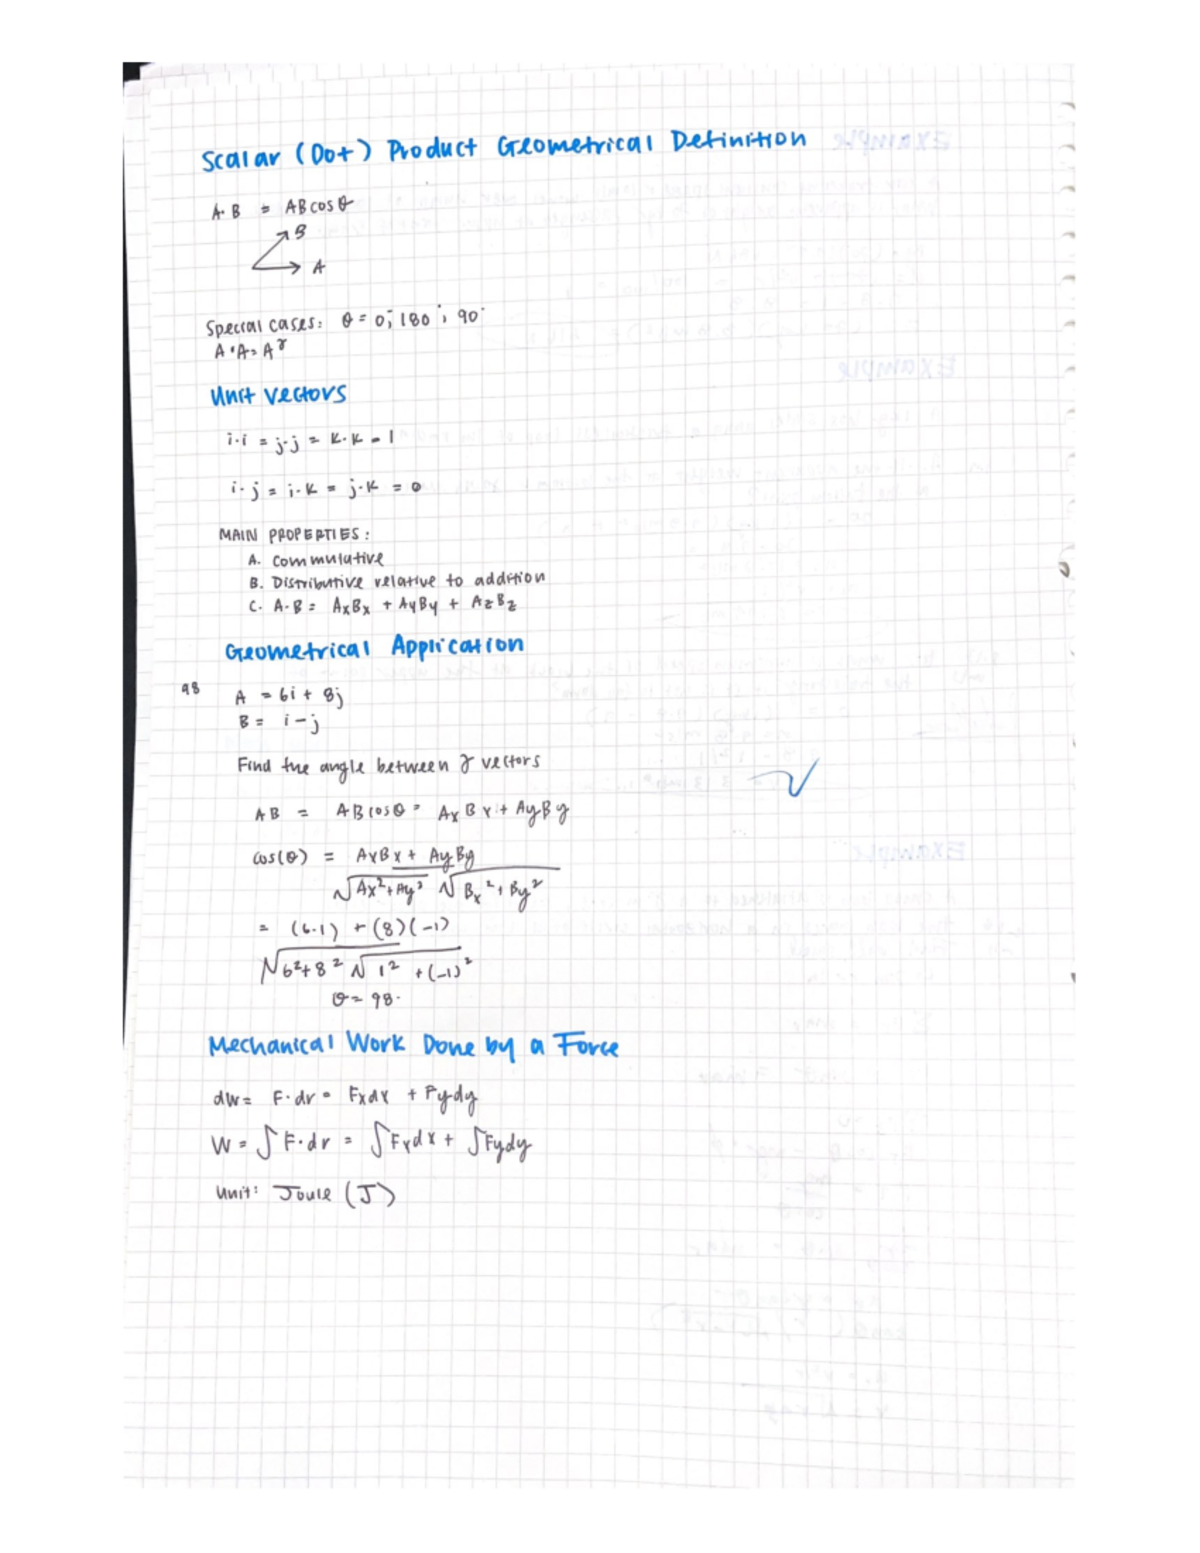 Scalar (Dot) Product Geometrical Definition
A·B = ABcosθ
B
A
Special cases: θ = 0°; 180°; 90°
A·A = A²
Unit vectors
i·i = j·j = k·k = 1
i·j = i·k = j·k = 0
MAIN PROPERTIES:
A. Commulative
B. Distributive relative to addition
C. A·B = AxBx + AyBy + AzBz
Geometrical Application
98
A = 6i + 8j
B = i - j
Find the angle between 2 vectors
AB = ABcosθ = AxBx + AyBy
cos(θ) = AxBx + AyBy
√Ax²+Ay² √Bx²+By²
= (6·1) + (8)(-1)
√6²+8² √1² + (-1)²
θ = 98°
Mechanical Work Done by a Force
dW = F·dr = Fxdx + Fydy
W = ∫F·dr = ∫Fxdx + ∫Fydy
Unit: Joule (J)